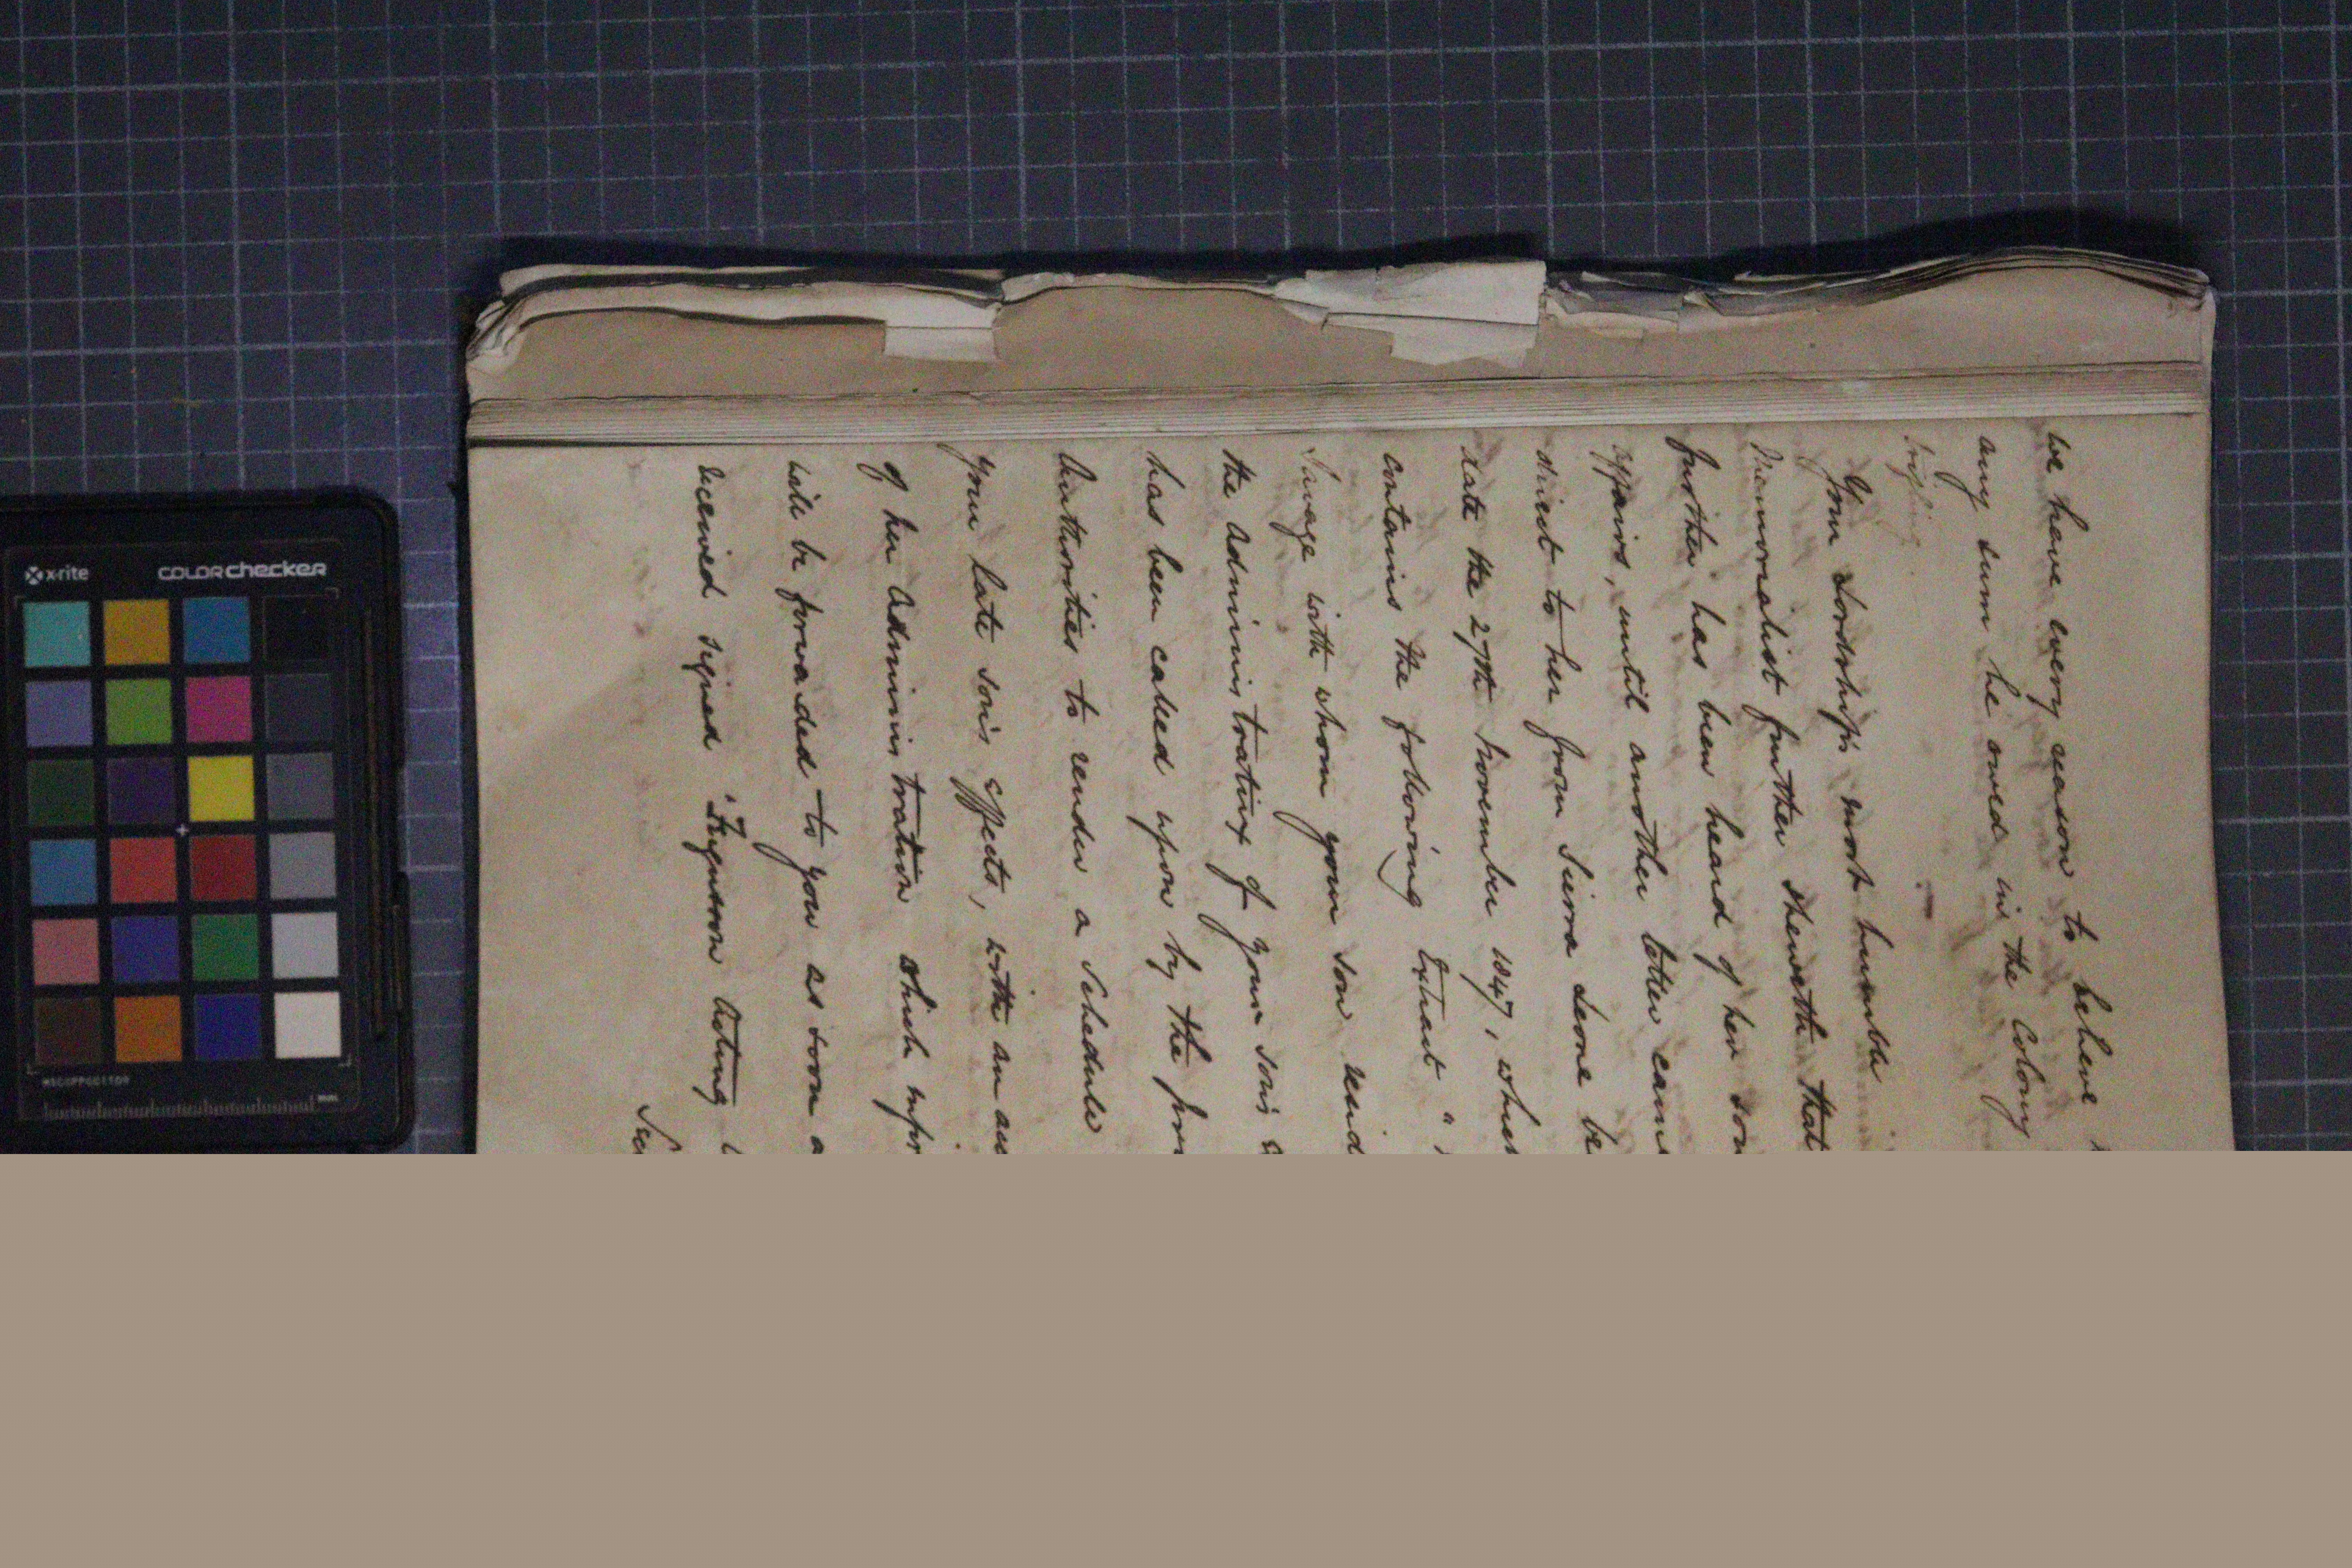 we have every reason to believe
any sum he owed in the Colony
trifling
Your Lordship's most humble
Memorialist further sheweth that
further has been heard of her son
affairs, until another letter came
direct to her from Sierra Leone be
date the 27th November 1847, whe
contains the following Extract "
Savage with whom your son resid
the Administratrix of your son's
has been called upon by the
Authorities to render a Schedule
your late son's effects, with an
of her Administration which
will be forwarded to you as soon a
received signed "Ferguson Acting
x-rite colorchecker